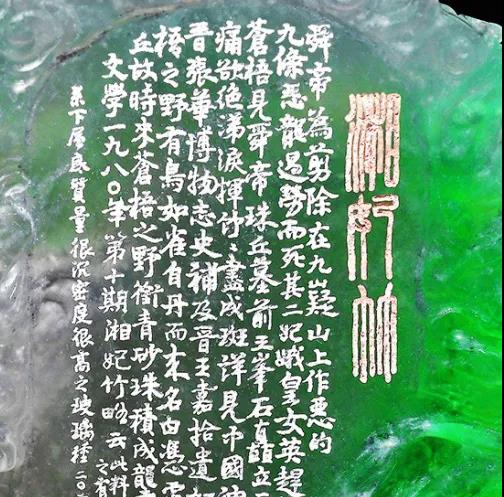 湘妃竹
舜帝為剪除在九嶷山上作惡的
九條惡龍過勞而死其二妃娥皇女英趕
蒼梧見舜帝珠丘墓前王峯石立
痛欲絕涕淚揮竹竹盡成斑詳見中國神
晋張華博物志史補及晋王嘉拾遺記
梧之野有鳥如雀自丹而來名曰憑霄
丘故時來蒼梧之野銜青砂珠積成龍
文學一九八〇年第十期湘妃竹略云此料之有
質量很沉密度很高之玻璃種二〇